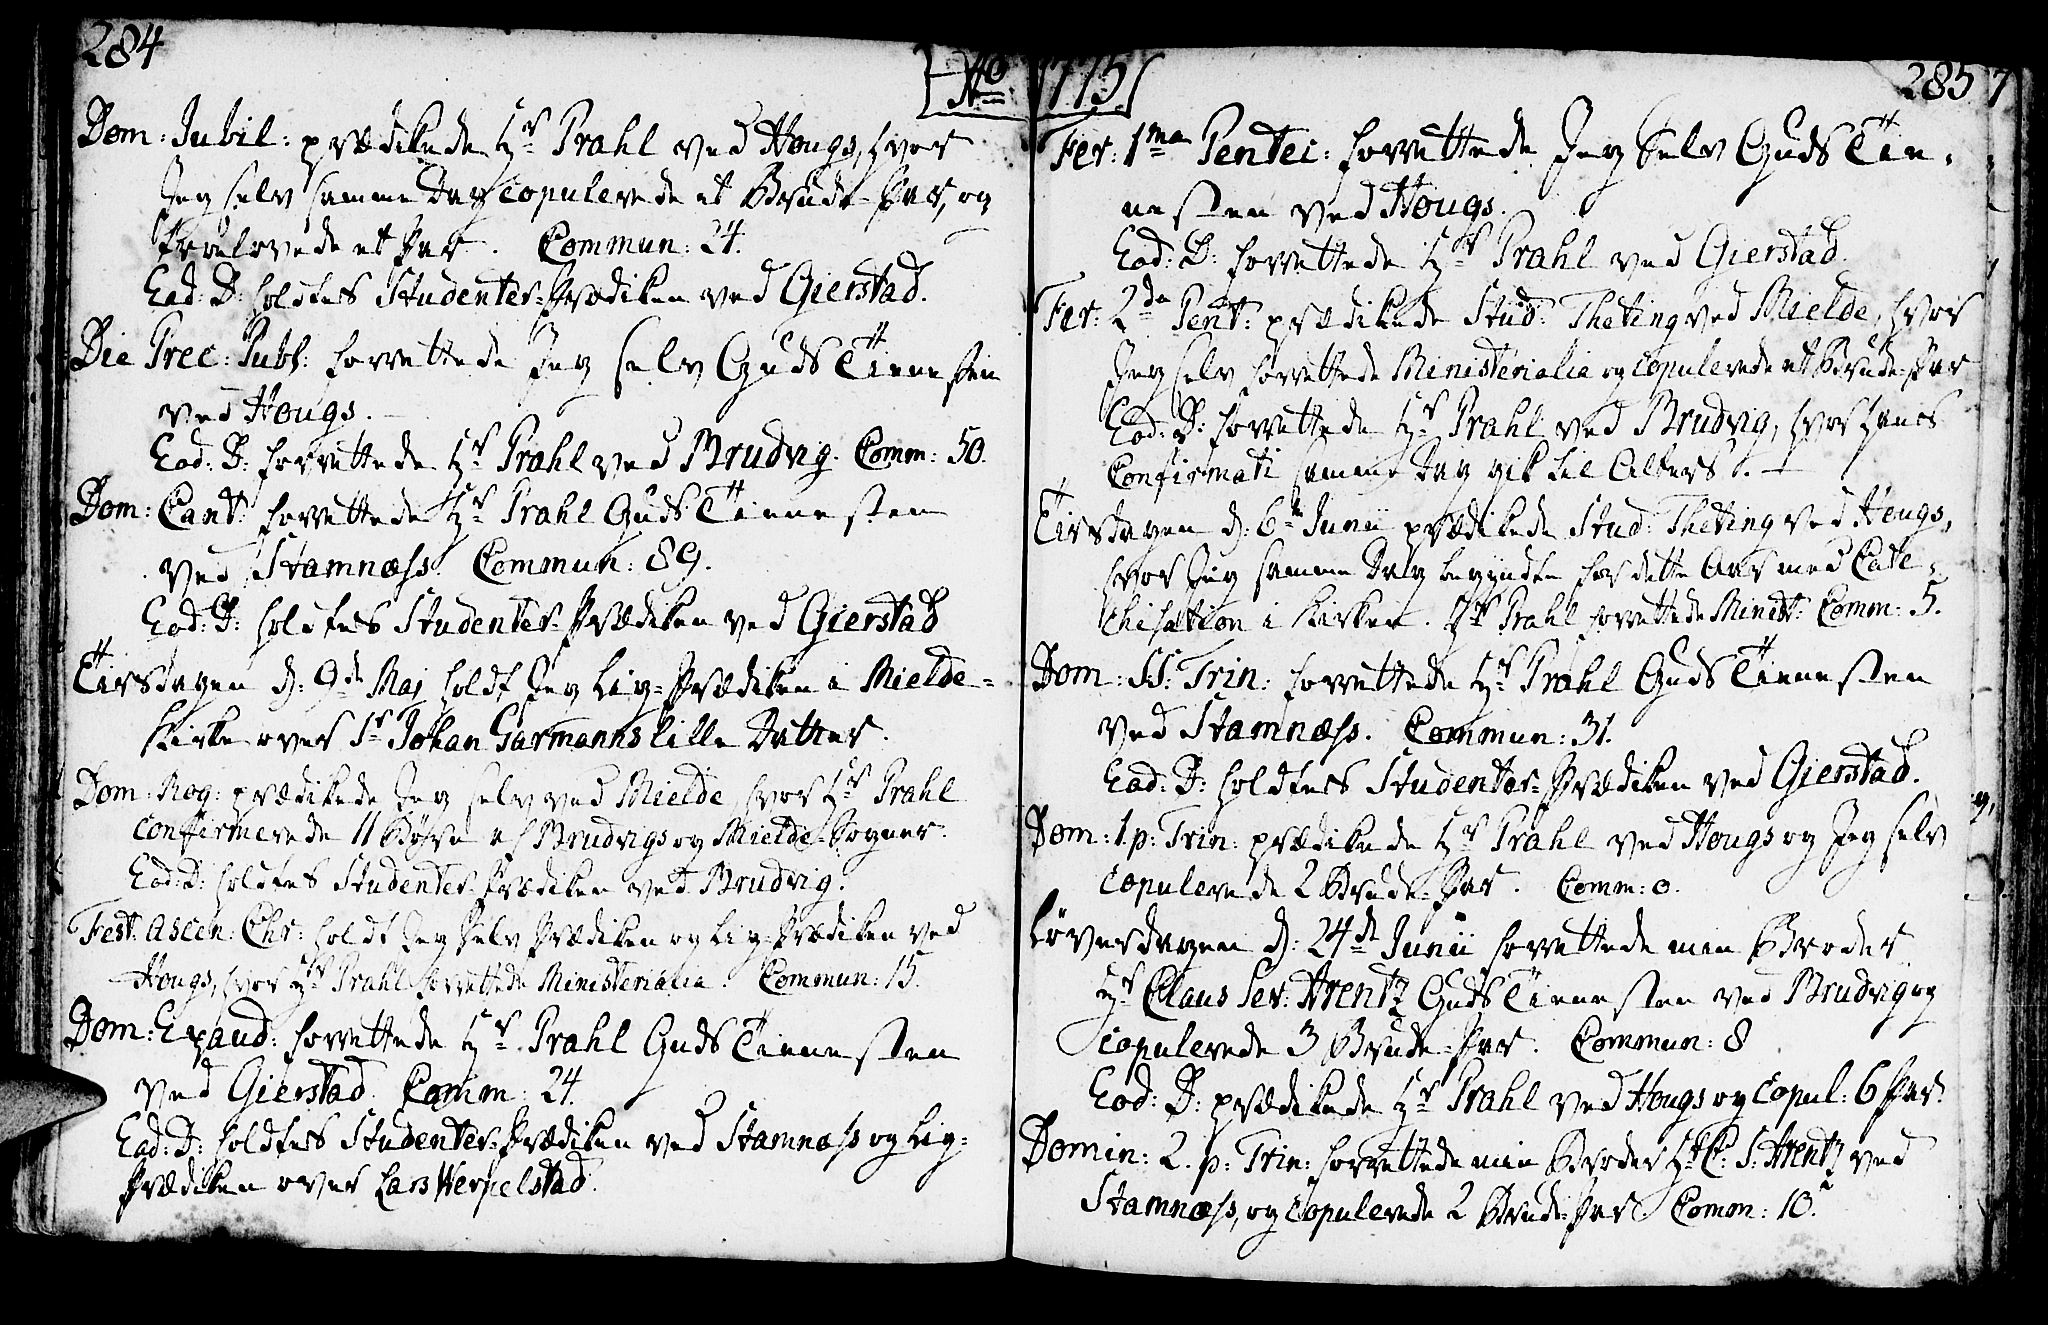 284
Dom: Jubil: prædikede Hr Prahl ved Hougs, hvor
Jeg selv samme Dag copulerede et Brude-Par, og
troelovede et Par. Commun: 24.
Eod: D: holdtes Studenter-Prædiken ved Gierstad.
Die Prec: Publ: forrettede Jeg selv Guds Tienesten
ved Hougs.
Eod: D: forrettede Hr Prahl ved Brudvig. Comm: 50.
Dom: Cant: forrettede Hr Prahl Guds Tienesten
ved Stamnæss. Commun: 89.
Eod: D: holdtes Studenter-Prædiken ved Gierstad
Tirsdagen d: 9de Maj holdt Jeg Lig-Prædiken i Mielde-
Kirke over Sr Johan Garmanns lille Datter.
Dom: Rog: prædikede Jeg selv ved Mielde, hvor Hr Prahl
confirmerede 11 Børn af Brudvigs og Mielde-Sogner.
Eod: D: holdtes Studenter-Prædiken ved Brudvig.
Fest: Ascen: Chr: holdt Jeg selv Prædiken og Lig-Prædiken ved
Hougs, hvor Hr Prahl forrettede Ministerialia. Commun: 15.
Dom: Exaud: forrettede Hr Prahl Guds Tienesten
ved Gierstad. Comm: 24.
Eod: D: holdtes Studenter-Prædiken ved Stamnæss og Lig-
Prædiken over Lars Werpelstad.
Ao 1775
285
Fer: 1ma Pentec: forrettede Jeg selv Guds Tie-
nesten ved Hougs.
Eod: D: forrettede Hr Prahl ved Gierstad.
Fer: 2da Pent: prædikede Stud: Theting ved Mielde, hvor
Jeg selv forrettede Ministerialia og copulerede et Brude-Par
Eod: D: forrettede Hr Prahl ved Brudvig, hvor hans
Confirmati samme Dag gik til Alters.
Tirsdagen d: 6te Junii prædikede Stud: Theting ved Hougs,
hvor Jeg samme Dag begyndte for dette Aar med Cate-
chisation i Kirken. Hr Prahl forrettede Minist: Comm: 5.
Dom: SS: Trin: forrettede Hr Prahl Guds Tienesten
ved Stamnæss. Commun: 31.
Eod: D: holdtes Studenter-Prædiken ved Gierstad.
Dom: 1 p: Trin: prædikede Hr Prahl ved Hougs og Jeg selv
copulerede 2 Brude-Par. Comm: 0.
Løverdagen d: 24de Junii forrettede min Broder
Hr Claus Sev: Arentz Guds Tienesten ved Brudvig og
copulerede 3 Brude-Par. Commun: 8
Eod: D: prædikede Hr Prahl ved Hougs og copul: 6 Par.
Domin: 2. p: Trin: forrettede min Broder Hr C: S: Arentz ved
Stamnæss, og copulerede 2 Brude-Par. Comm: 10.